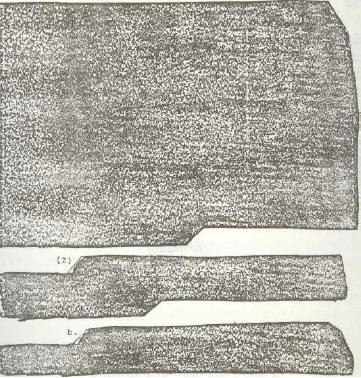 (2)
b.